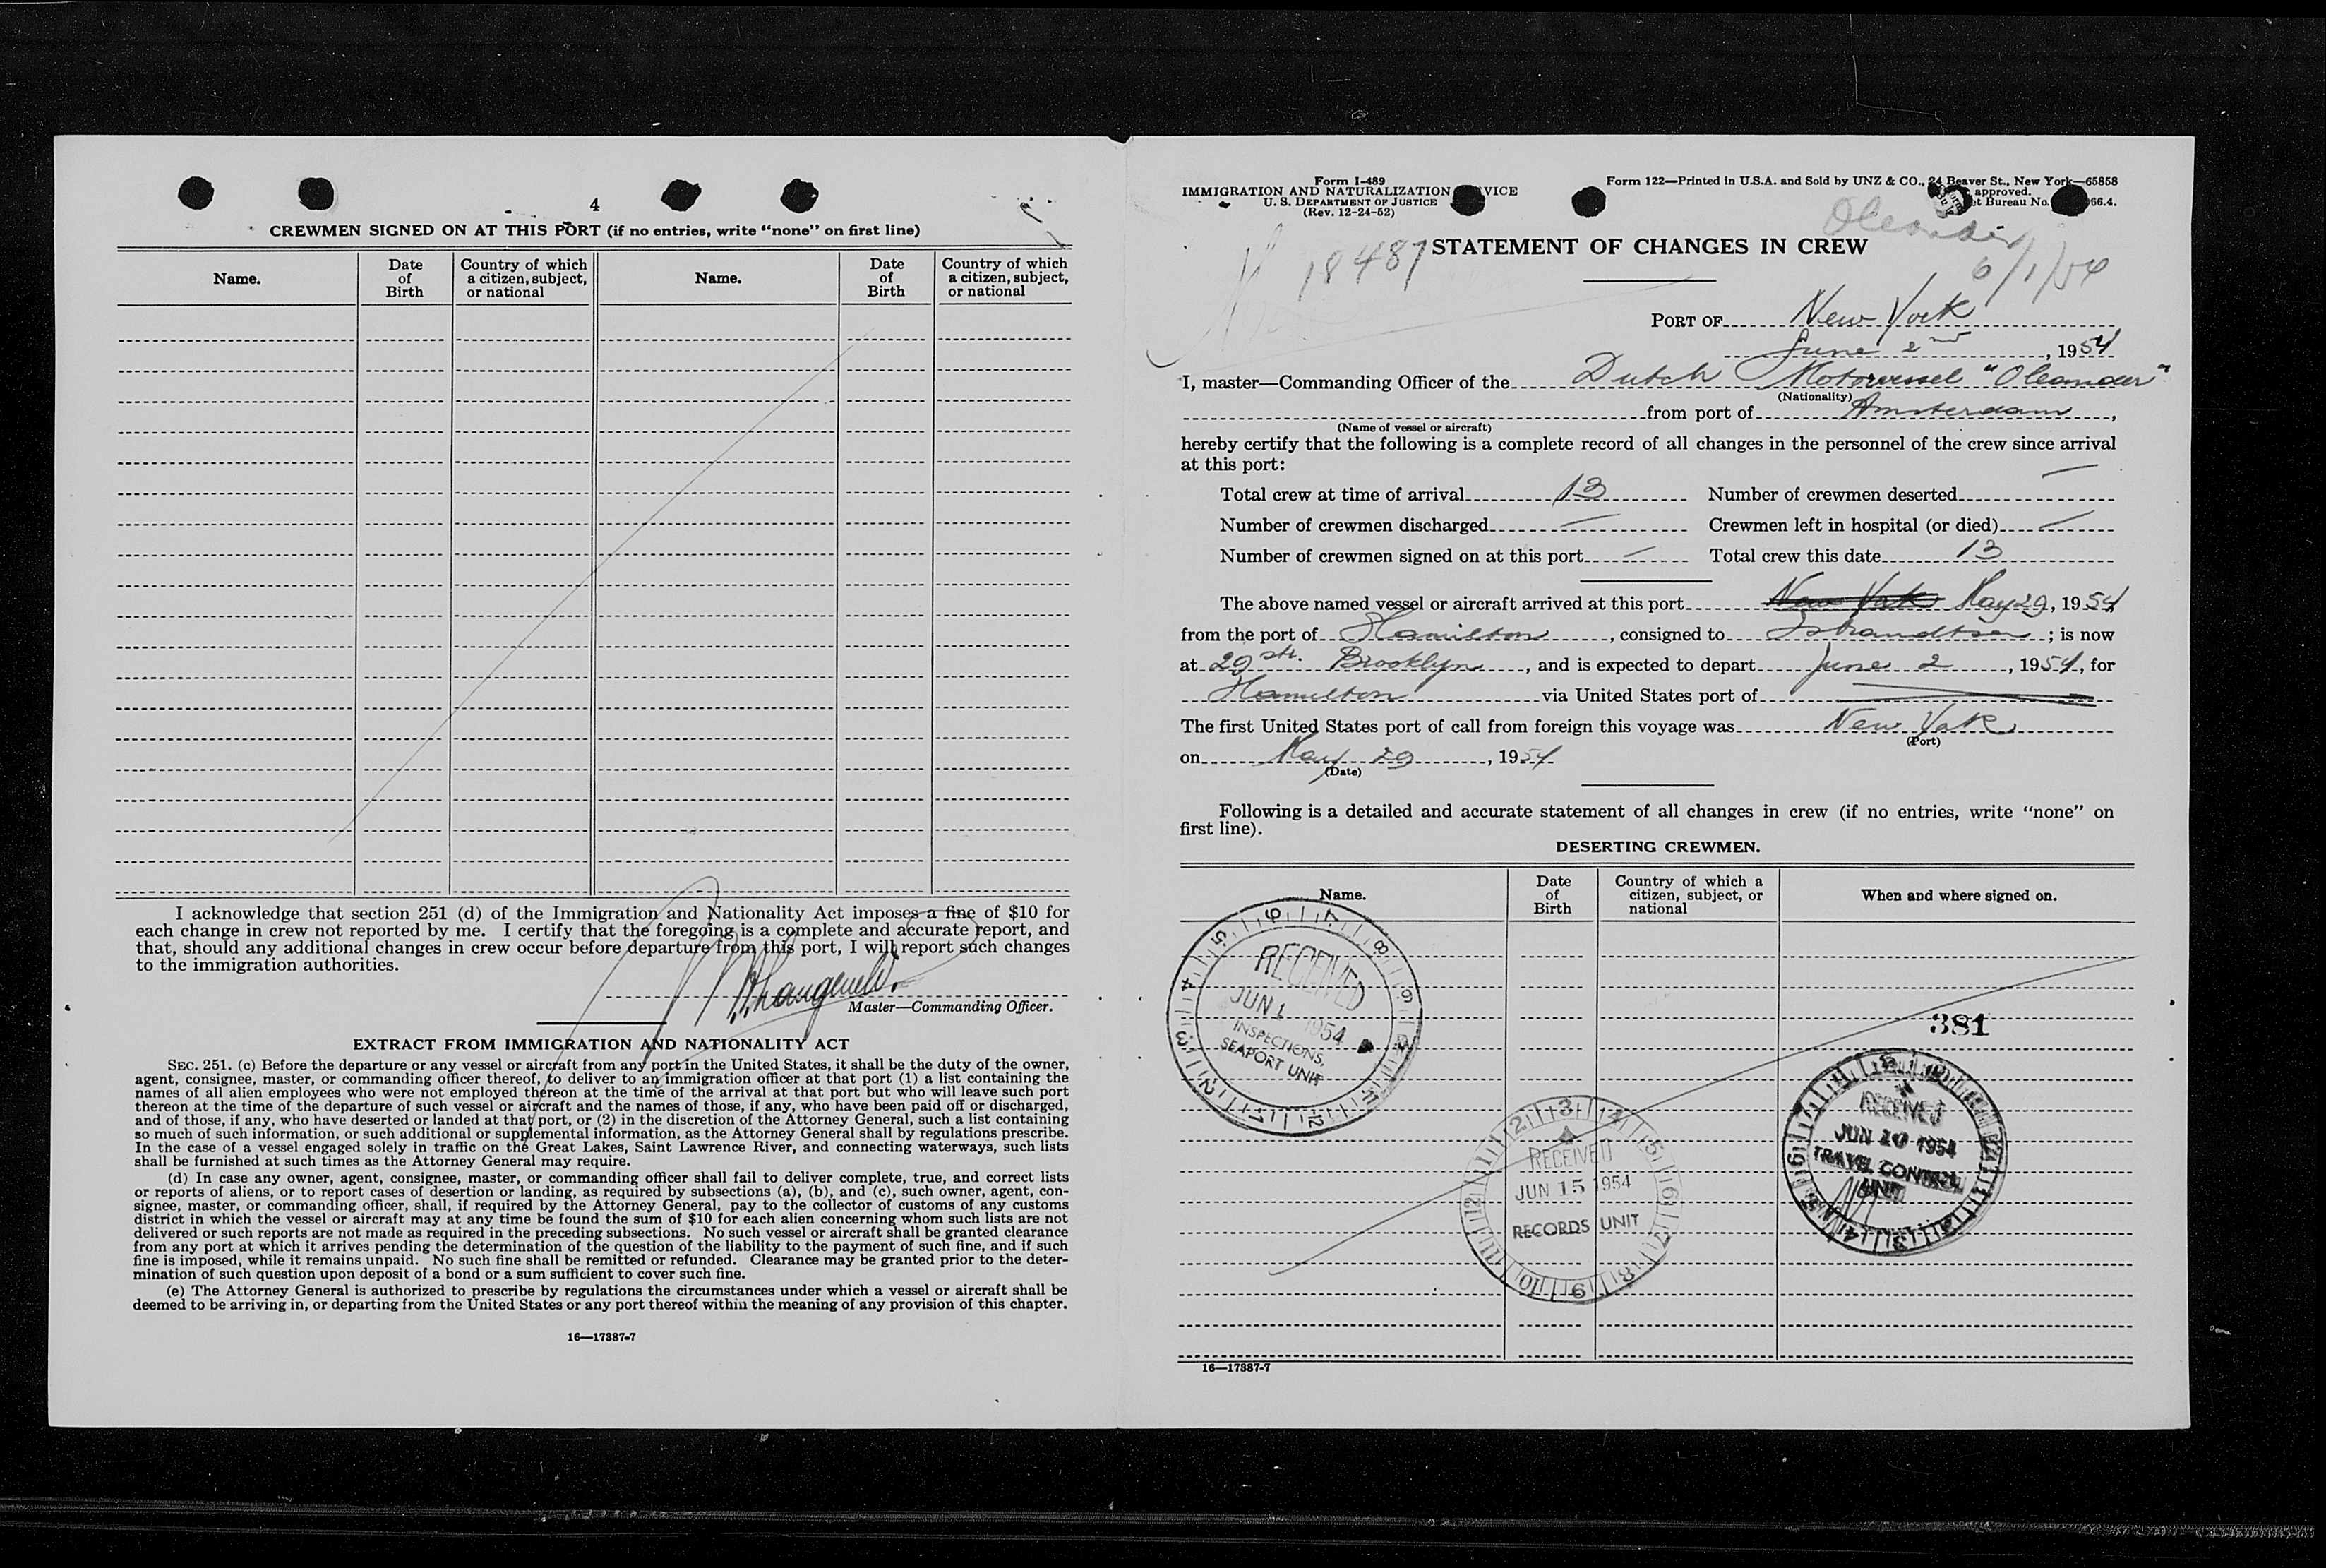 4
CREWMEN SIGNED ON AT THIS PORT (if no entries, write “none” on first line)
Name.
Date
of
Birth
Country of which
a citizen, subject,
or national
Name.
Date
of
Birth
Country of which
a citizen, subject,
or national
I acknowledge that section 251 (d) of the Immigration and Nationality Act imposes a fine of $10 for
each change in crew not reported by me. I certify that the foregoing is a complete and accurate report, and
that, should any additional changes in crew occur before departure from this port, I will report such changes
to the immigration authorities.
Master—Commanding Officer.
EXTRACT FROM IMMIGRATION AND NATIONALITY ACT
SEC. 251. (c) Before the departure or any vessel or aircraft from any port in the United States, it shall be the duty of the owner,
agent, consignee, master, or commanding officer thereof, to deliver to an immigration officer at that port (1) a list containing the
names of all alien employees who were not employed thereon at the time of the arrival at that port but who will leave such port
thereon at the time of the departure of such vessel or aircraft and the names of those, if any, who have been paid off or discharged,
and of those, if any, who have deserted or landed at that port, or (2) in the discretion of the Attorney General, such a list containing
so much of such information, or such additional or supplemental information, as the Attorney General shall by regulations prescribe.
In the case of a vessel engaged solely in traffic on the Great Lakes, Saint Lawrence River, and connecting waterways, such lists
shall be furnished at such times as the Attorney General may require.
(d) In case any owner, agent, consignee, master, or commanding officer shall fail to deliver complete, true, and correct lists
or reports of aliens, or to report cases of desertion or landing, as required by subsections (a), (b), and (c), such owner, agent, con-
signee, master, or commanding officer, shall, if required by the Attorney General, pay to the collector of customs of any customs
district in which the vessel or aircraft may at any time be found the sum of $10 for each alien concerning whom such lists are not
delivered or such reports are not made as required in the preceding subsections. No such vessel or aircraft shall be granted clearance
from any port at which it arrives pending the determination of the question of the liability to the payment of such fine, and if such
fine is imposed, while it remains unpaid. No such fine shall be remitted or refunded. Clearance may be granted prior to the deter-
mination of such question upon deposit of a bond or a sum sufficient to cover such fine.
(e) The Attorney General is authorized to prescribe by regulations the circumstances under which a vessel or aircraft shall be
deemed to be arriving in, or departing from the United States or any port thereof within the meaning of any provision of this chapter.
16—17387-7
Form I-489
IMMIGRATION AND NATURALIZATION VICE
U. S. DEPARTMENT OF JUSTICE
(Rev. 12-24-52)
Form 122—Printed in U.S.A. and Sold by UNZ & CO., 24 Beaver St., New York—65858
approved.
et Bureau No. 66.4.
Oleander
6/1/54
18487
STATEMENT OF CHANGES IN CREW
PORT OF New York
June 2nd, 1954
I, master—Commanding Officer of the Dutch Motorvessel "Oleander"
(Nationality)
from port of Amsterdam,
(Name of vessel or aircraft)
hereby certify that the following is a complete record of all changes in the personnel of the crew since arrival
at this port:
Total crew at time of arrival 13 Number of crewmen deserted —
Number of crewmen discharged — Crewmen left in hospital (or died) —
Number of crewmen signed on at this port — Total crew this date 13
The above named vessel or aircraft arrived at this port New York May 29, 1954
from the port of Hamilton, consigned to Isbrandtsen; is now
at 29 str. Brooklyn, and is expected to depart June 2, 1954, for
Hamilton via United States port of
The first United States port of call from foreign this voyage was New York
(Port)
on May 29, 1954
(Date)
Following is a detailed and accurate statement of all changes in crew (if no entries, write “none” on
first line).
DESERTING CREWMEN.
Name.
Date
of
Birth
Country of which a
citizen, subject, or
national
When and where signed on.
RECEIVED
JUN 1 1954
INSPECTIONS,
SEAPORT UNIT
381
RECEIVED
JUN 10 1954
TRAVEL CONTROL
UNIT
RECEIVED
JUN 15 1954
RECORDS UNIT
16—17387-7